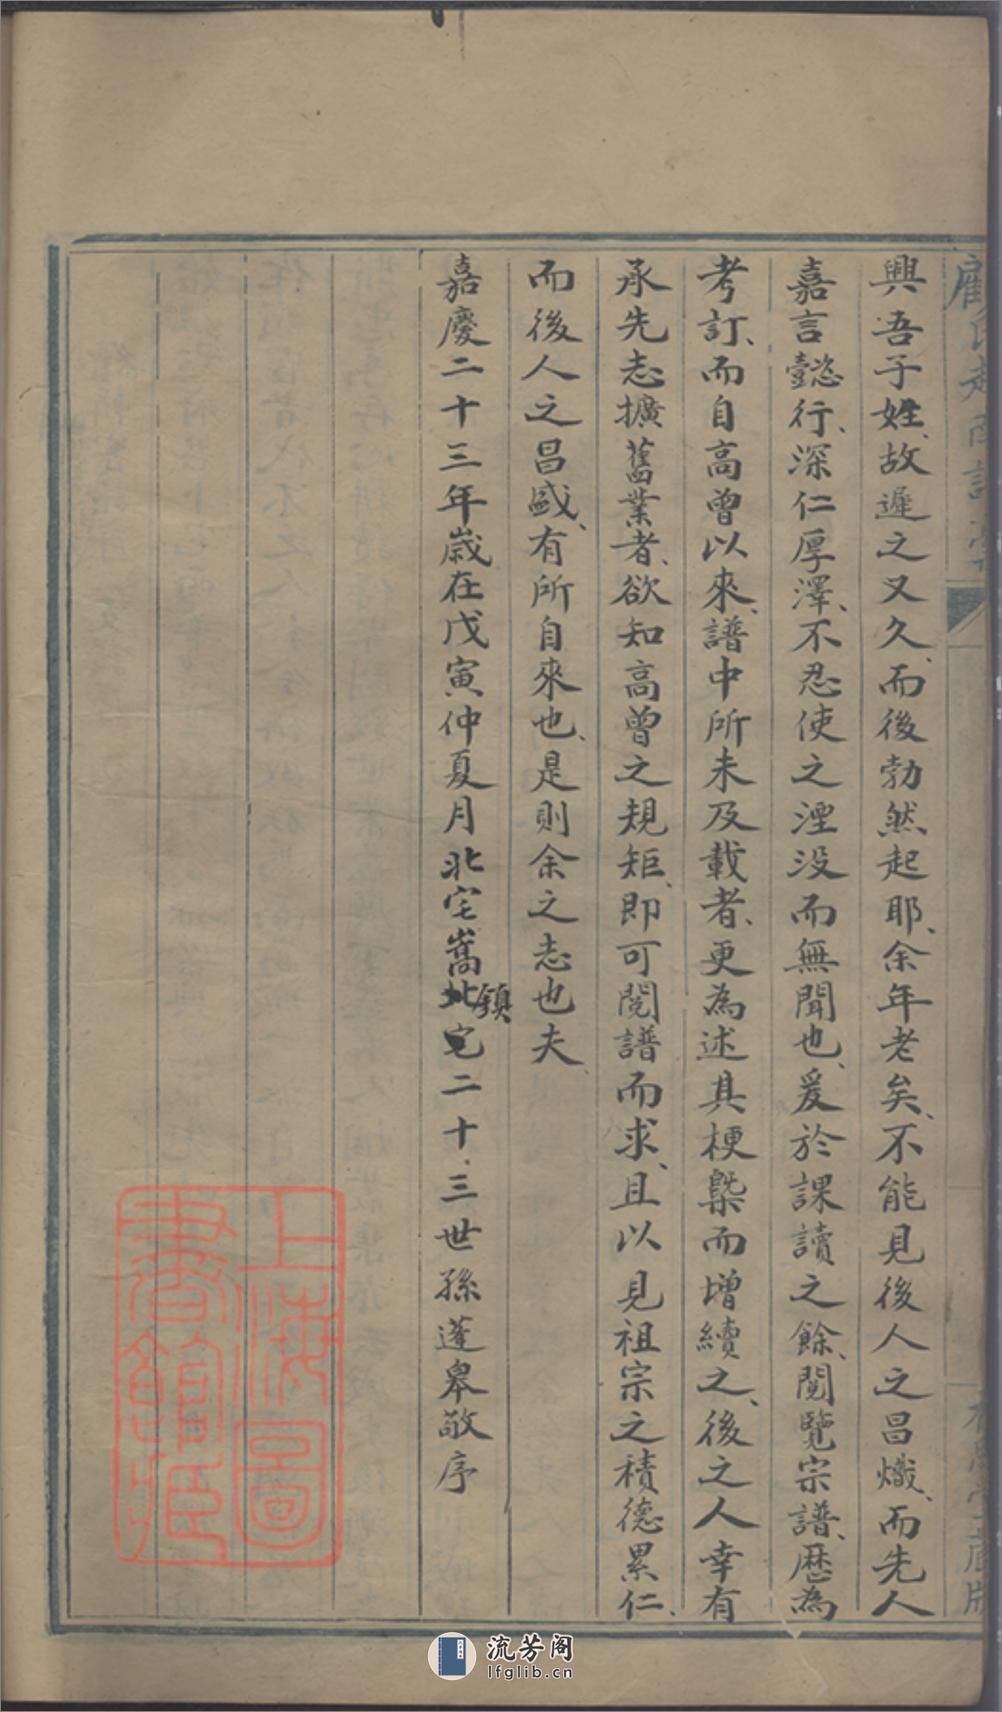 興吾子姓、故遲之又久、而後勃然起耶、余年老矣、不能見後人之昌熾、而先人
嘉言懿行、深仁厚澤、不忍使之湮没而無聞也、爰於課讀之餘、閱覽宗譜、歷為
考訂、而自高曾以來、譜中所未及載者、更為述其梗槩而增續之、後之人幸有
承先志擴舊業者、欲知高曾之規矩、即可閱譜而求、且以見祖宗之積德累仁、
而後人之昌盛、有所自來也、是則余之志也夫
嘉慶二十三年歲在戊寅仲夏月北宅嵩鎮北宅二十三世孫蓬皋敬序
上海圖
書館藏
流芳阁
lfglib.cn